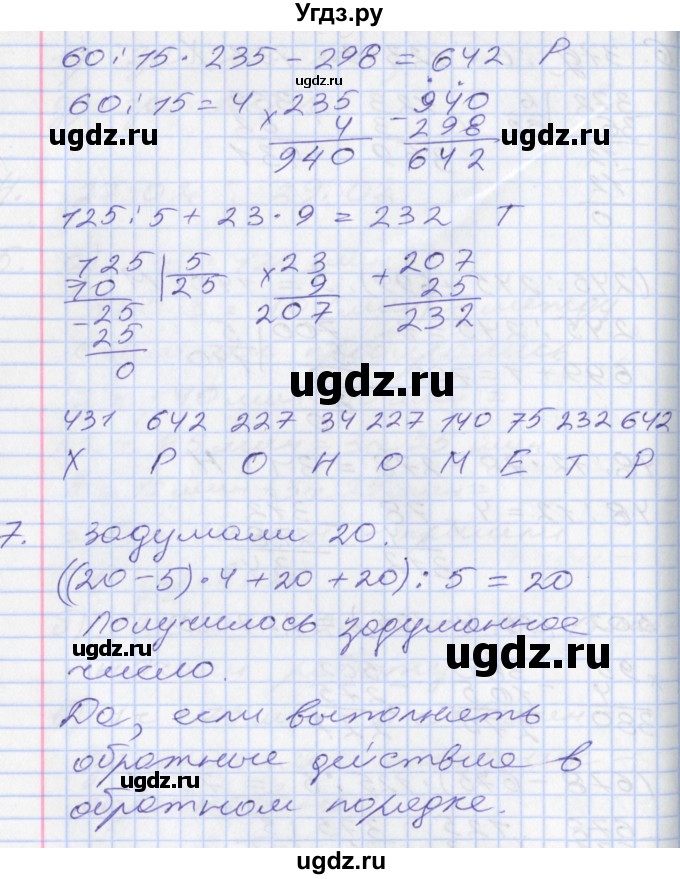 Угдз.ру
60 : 15 · 235 - 298 = 642 Р
ugdz.ru
60 : 15 = 4 × 235 - 940
ugdz.ru 4 298 ugdz.ru
940 642
125 : 5 + 23 · 9 = 232 Т
125 | 5 × 23 + 207
10 25 9 25
- 25 207 232
25
0
ugdz.ru
431 642 227 34 227 140 75 232 642
Х Р О Н О М Е Т Р
7. Задумали 20.
((20 - 5) · 4 + 20 + 20) : 5 = 20
Получилось задуманное
ugdz.ru ugdz.ru
число.
Да, если выполнять
обратные действия в
ugdz.ru
обратном порядке.
ugdz.ru